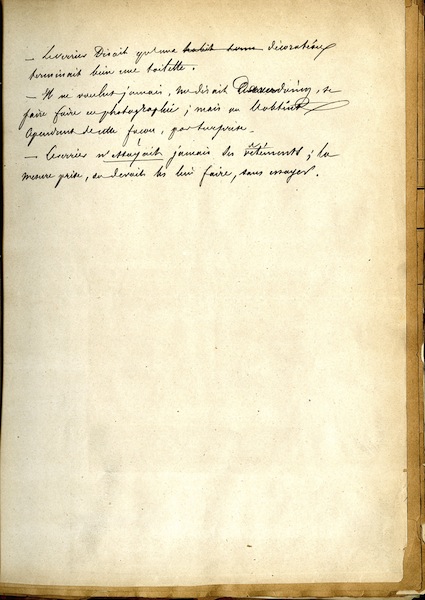 — Leverrier Disait qu'une habit dans décoration
terminait bien une toilette.
— Il ne voulut jamais, me disait, se
faire faire en photographie ; mais on l'obtint
cependant de cette façon, par surprise.
— Leverrier n'essayait jamais ses vêtements ; la
mesure prise, on devait les lui faire, sans essayer.